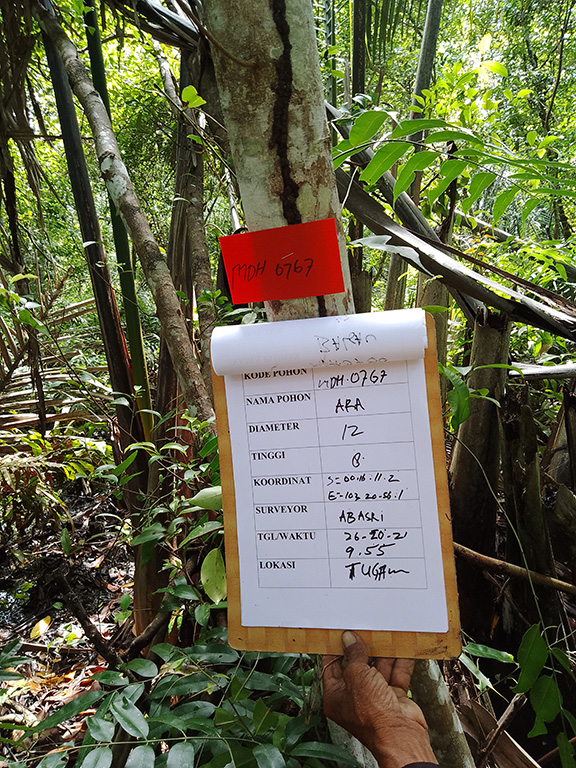 MDH 0767
KODE POHON MDH.0767
NAMA POHON ARA
DIAMETER 12
TINGGI 8
KOORDINAT S=00.16.11.2
E=103.20.56.1
SURVEYOR ABASRI
TGL/WAKTU 26-10-21
9.55
LOKASI TUGAM